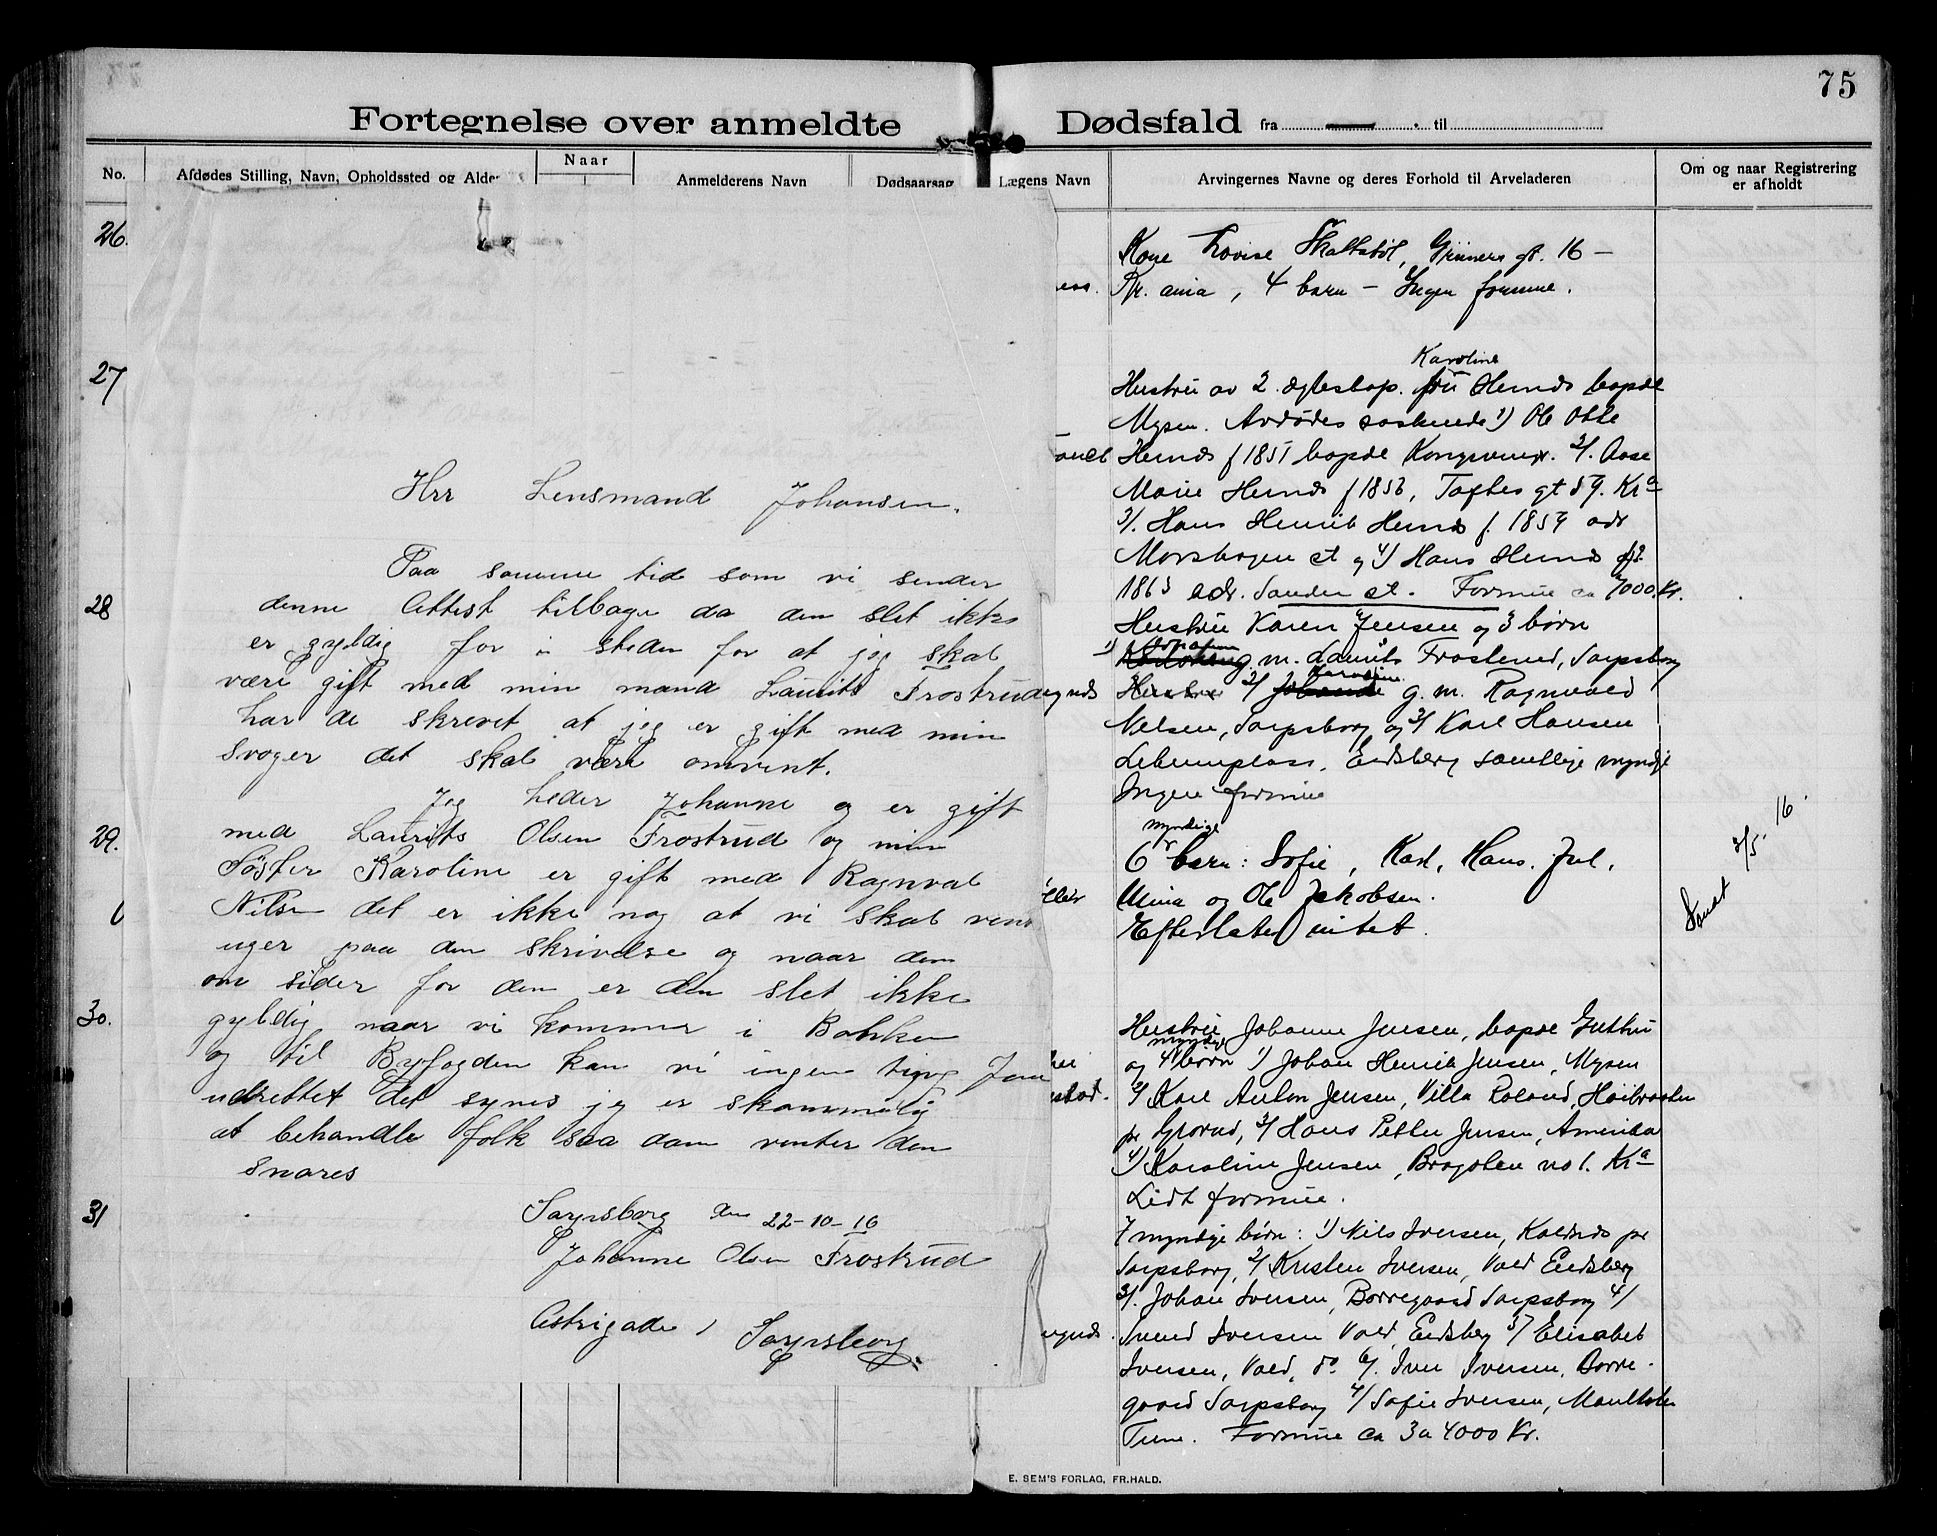 75
Fortegnelse over anmeldte Dødsfald fra til
No.
Afdødes Stilling, Navn, Opholdssted og Alder
Naar
Anmelderens Navn
Dødsaarsag
Lægens Navn
Arvingernes Navne og deres Forhold til Arveladeren
Om og naar Registrering
er afholdt
26.
27
28
29.
30.
31
Hrr Lensmand Johansen.
Paa samme tid som vi sender
denne Attest tilbage da den slet ikke
er gyldig for i steden for at jeg skal
være gift med min mand Laurits Frostrud
har de skrevet at jeg er gift med min
svoger det skal være omvent.
Jeg heder Johanne og er gift
med Laurits Olsen Frostrud og min
Søster Karoline er gift med Ragnval
Nilsen det er ikke nog at vi skal vente
uger paa den skrivelse og naar dem
om sider for den er den slet ikke
gyldig naar vi kommer i Banken
og til Byfogden kan vi ingen ting faa
udrettet det synes jeg er skammelig
at behandle folk saa dan venter den
snares
Sarpsborg den 22-10-16
Johanne Olsen Frostrud
Astrigade 1 Sarpsborg.
Kone Lovise Skaltstöl, Grüners gt. 16 –
Kr. ania, 4 barn – Ingen formue.
Karoline
Hustru av 2. ægteskap. fru Hernds bopæl
Mysen. Avdødes søskende 1) Ole Otto
Hernds f 1851 bopæl Kongsvinger. 2/. Aase
Marie Hernds f 1853, Toftes gt 59. Kra
3/. Hans Henrik Hernds f. 1859 adr
Morskogen st og 4) Hans Hernds f.
1863 adr. Sander st. Formue ca 7000 Kr.
Hustru Karen Jensen og 3 børn
1) Johanne g. m. Laurits Frostrud, Sarpsborg
2/ Karoline g. m. Ragnvald
Nilsen, Sarpsborg og 3/ Karl Hansen
Lekumplass, Eidsberg samtlige myndige
Ingen formue
myndige
6 barn: Sofie, Karl, Hans. Jul.
Mina og Ole Jakobsen.
Efterlater intet.
Sendt 2/5. 16.
Hustru Johanne Jensen, bopæl Guthu
myndige
og 4 børn 1) Johan Henrik Jensen, Mysen
2/ Karl Anton Jensen, Villa Roland, Høibraaten
pr Grorud, 3/ Hans Petter Jensen, Amerika
4) Karoline Jensen, Brogaten no 1. Kra
Lidt formue.
7 myndige børn: 1) Nils Iversen, Kalnes pr
Sarpsborg, 2/ Kristen Iversen, Vold Eidsberg
3/. Johan Iversen, Borregaard Sarpsborg 4/
Svend Iversen Vold, Eidsberg 5/ Elisabet
Iversen, Vold, do 6/. Iver Iversen, Borre-
gaard Sarpsborg 7/ Sofie Iversen,
Tune. Formue ca 3 a 4000 Kr.
E. SEM'S FORLAG, FR.HALD.